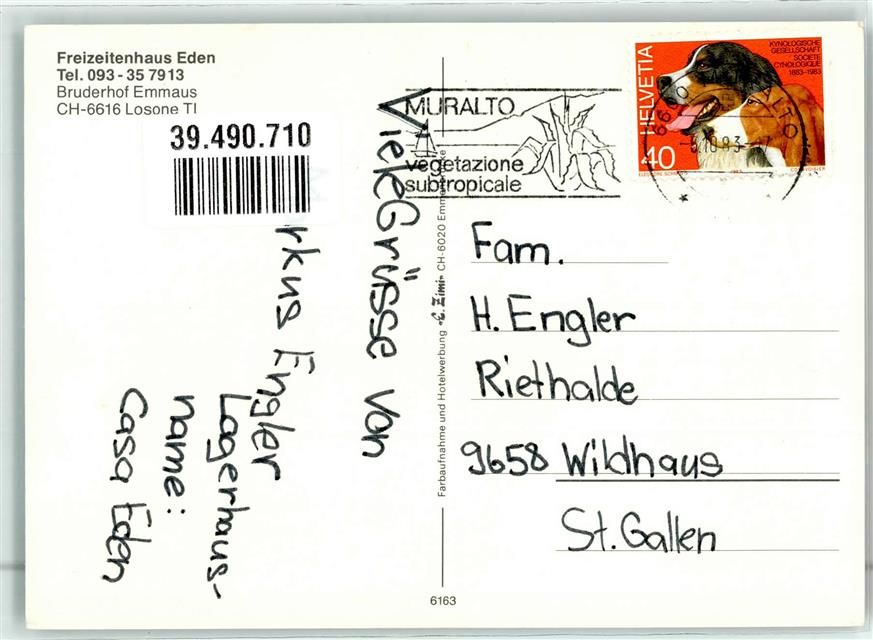 Freizeitenhaus Eden
Tel. 093 - 35 7913
Bruderhof Emmaus
CH-6616 Losone TI
39.490.710
Viele Grüsse von
rkus Engler
Lagerhaus-
name:
Casa Eden
MURALTO
vegetazione
subtropicale
HELVETIA
40
KYNOLOGISCHE
GESELLSCHAFT
SOCIETE
CYNOLOGIQUE
1883-1983
Farbaufnahme und Hotelwerbung E. Zimi CH-6020
Fam.
H. Engler
Riethalde
9658 Wildhaus
St. Gallen
6163